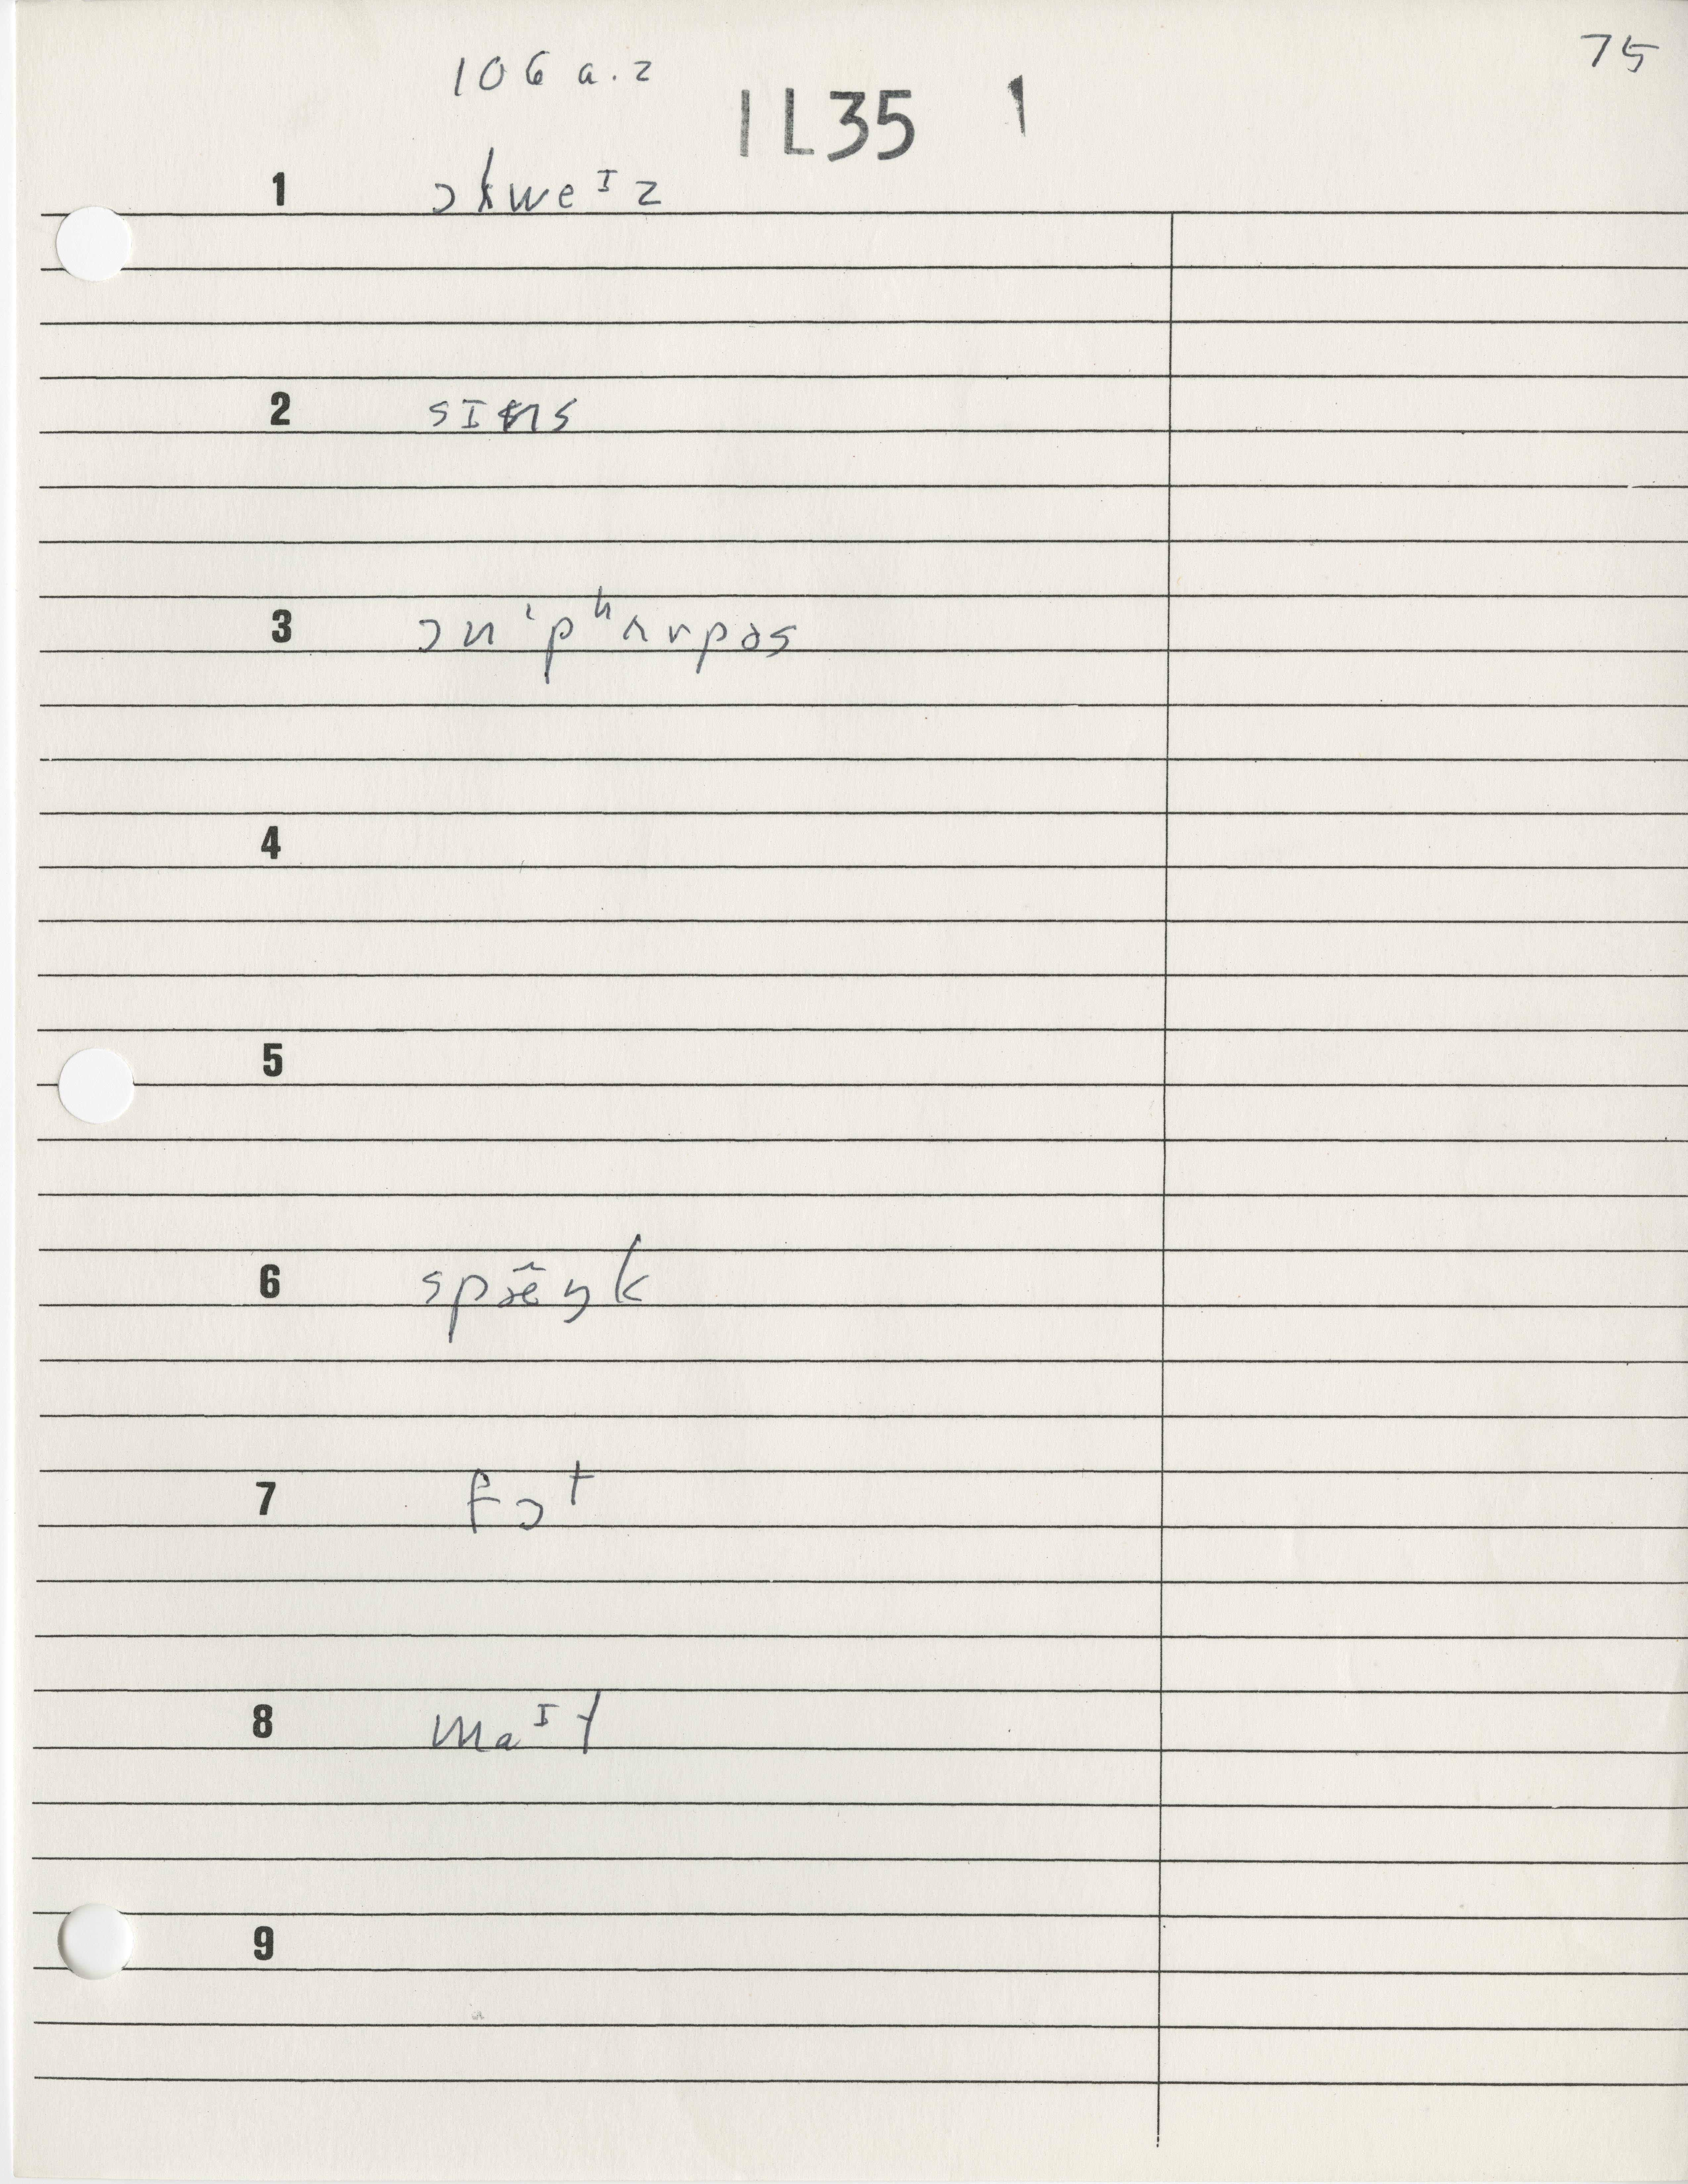 75
106 a.2
IL35 1
1 ɔkweᴵz
2 sɪns
3 ɔnˈpʰʌrpəs
4
5
6 spæ̃ŋk
7 fɔt
8 maᴵɫ
9